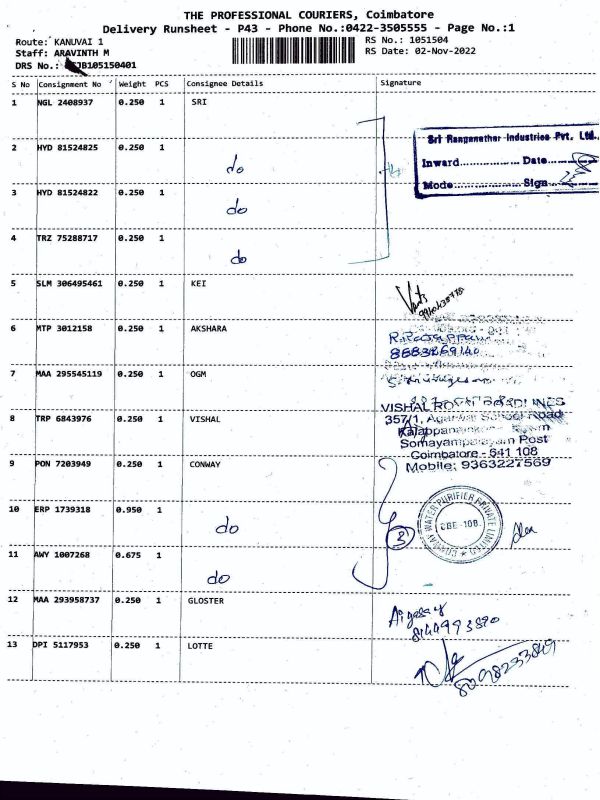 THE PROFESSIONAL COURIERS, Coimbatore
Delivery Runsheet - P43 - Phone No.:0422-3505555 - Page No.:1
Route: KANUVAI 1
RS No.: 1051504
Staff: ARAVINTH M
RS Date: 02-Nov-2022
DRS No.: JB105150401
S No Consignment No Weight PCS Consignee Details Signature
1 NGL 2408937 0.250 1 SRI
Sri Ranganathar Industries Pvt. Ltd.,
2 HYD 81524825 0.250 1 do
4
Inward.................. Date............
Mode.................. Sign............
3 HYD 81524822 0.250 1 do
4 TRZ 75288717 0.250 1 do
5 SLM 306495461 0.250 1 KEI
6 MTP 3012158 0.250 1 AKSHARA
7 MAA 295545119 0.250 1 OGM
8 TRP 6843976 0.250 1 VISHAL
VISHAL ROADLINES
357/1, Agarwal School Road
Somayampalayam Post
Coimbatore - 641 108
Mobile: 9363227569
9 PON 7203949 0.250 1 CONWAY
10 ERP 1739318 0.950 1 do
3
CONWAY WATER PURIFIER PRIVATE LIMITED
CBE-108
11 AWY 1007268 0.675 1 do
12 MAA 293958737 0.250 1 GLOSTER
13 DPI 5117953 0.250 1 LOTTE
8098233849